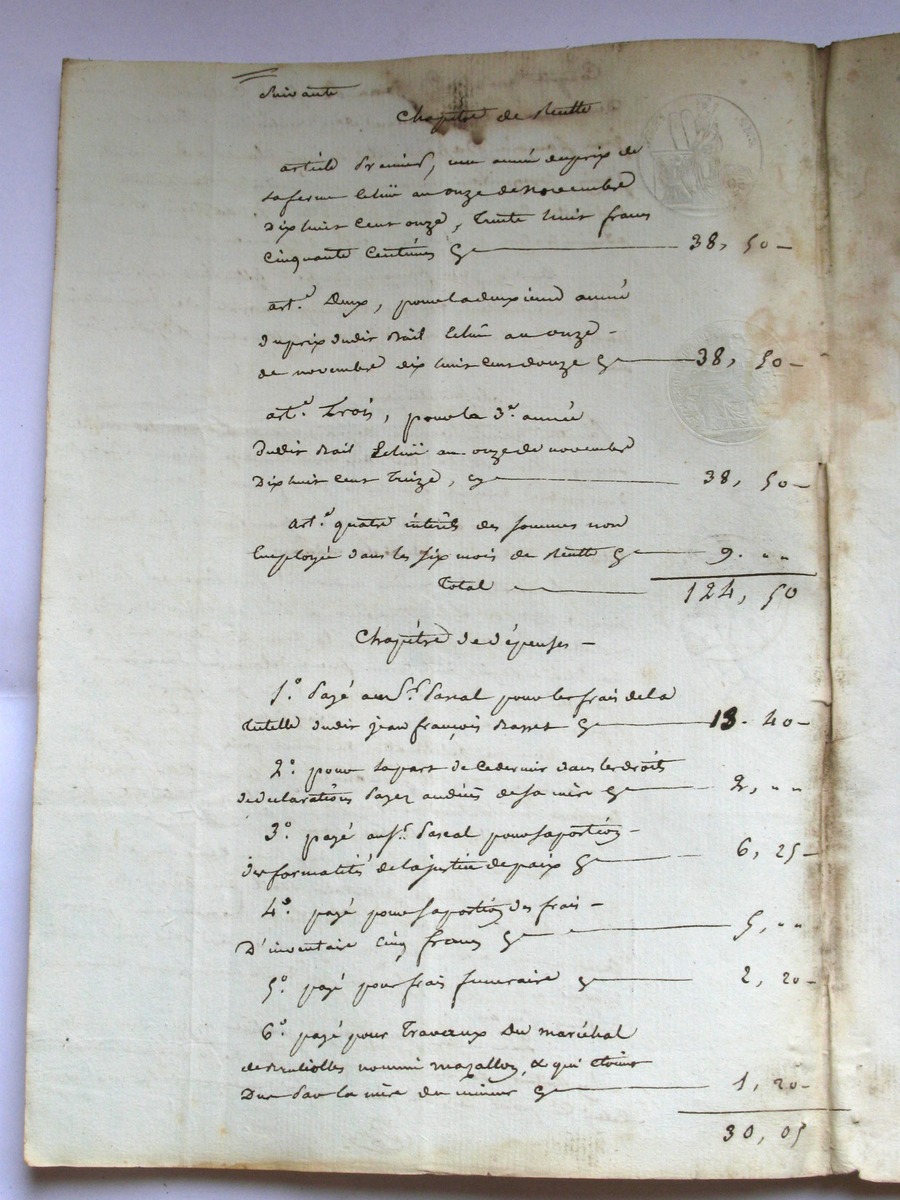 suivante
Chapitre de Recette
article premier, une année du prix de
la ferme échüe au onze de novembre
dix huit cent onze, trente huit francs
cinquante centimes Cy 38, 50
art.e Deux, pour la deuxieme année
du prix dudit Bail échüe au onze
de novembre dix huit cent douze Cy 38, 50
art.e Trois, pour la 3e. année
dudit Bail Echüe au onze de novembre
Dix huit cent Treize, cy 38, 50
art.e quatre intérêts des sommes non
Employées dans les six mois de Recette Cy 9. " "
Total 124, 50
Chapitre de dépenses
1o. Payé au Sr. Pascal pour les frais de la
tutelle dudit jean françois Basset Cy 13. 40
2o. pour sa part de ce dernier dans les droits
de declarations Payez au décès de sa mère Cy 2, " "
3o. payé au Sr. Pascal pour sa portion
des formalités de la justice de paix Cy 6, 25
4o. payé pour sa portion des frais
D'inventaire cinq francs Cy 5, " "
5o. payé pour frais funeraire Cy 2, 20
6o. payé pour Travaux Du maréchal
de nommé mazallon, & qui étoint
Due par la mère du mineur Cy 1, 20
30, 05